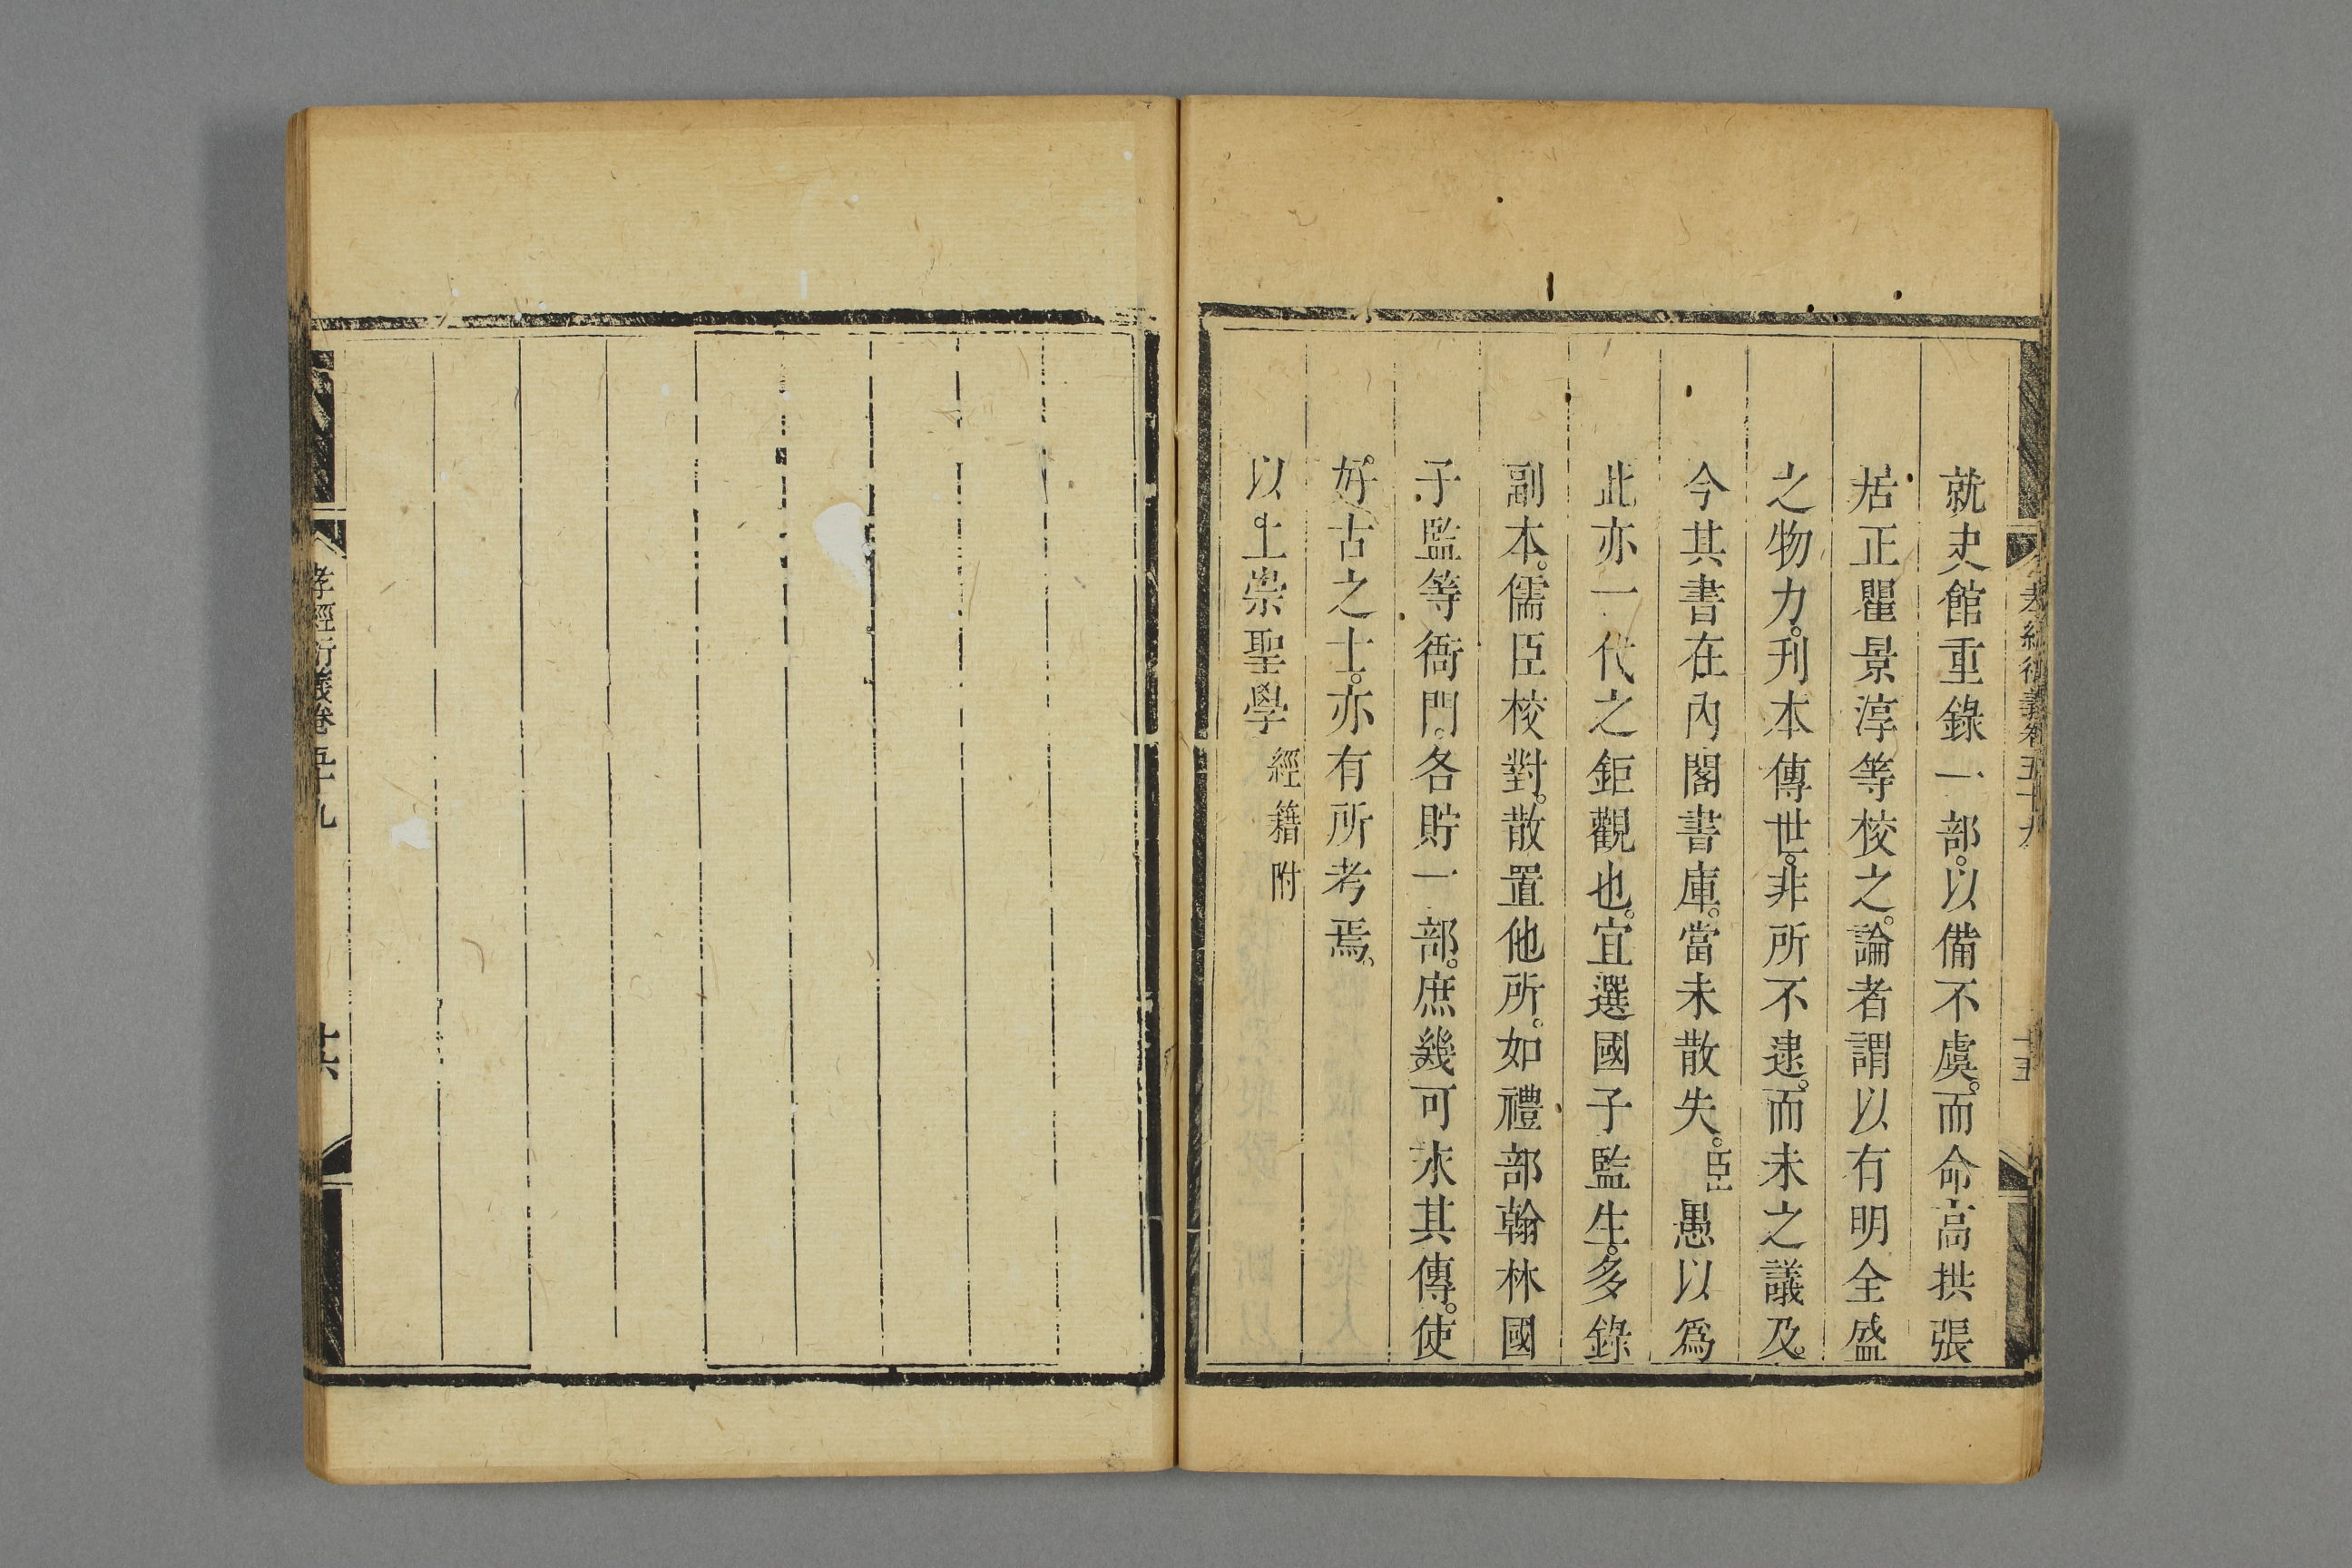 孝經衍義卷五十九
十五
就史館重錄一部。以備不虞。而命高拱張
居正瞿景淳等校之。論者謂以有明全盛
之物力。刋本傳世。非所不逮。而未之議及。
今其書在內閣書庫。當未散失。臣愚以爲
此亦一代之鉅觀也。宜選國子監生。多錄
副本。儒臣校對。散置他所。如禮部翰林國
子監等衙門。各貯一部。庶幾可永其傳。使
好古之士。亦有所考焉。
以上崇聖學經籍附
孝經衍義卷五十九
十六